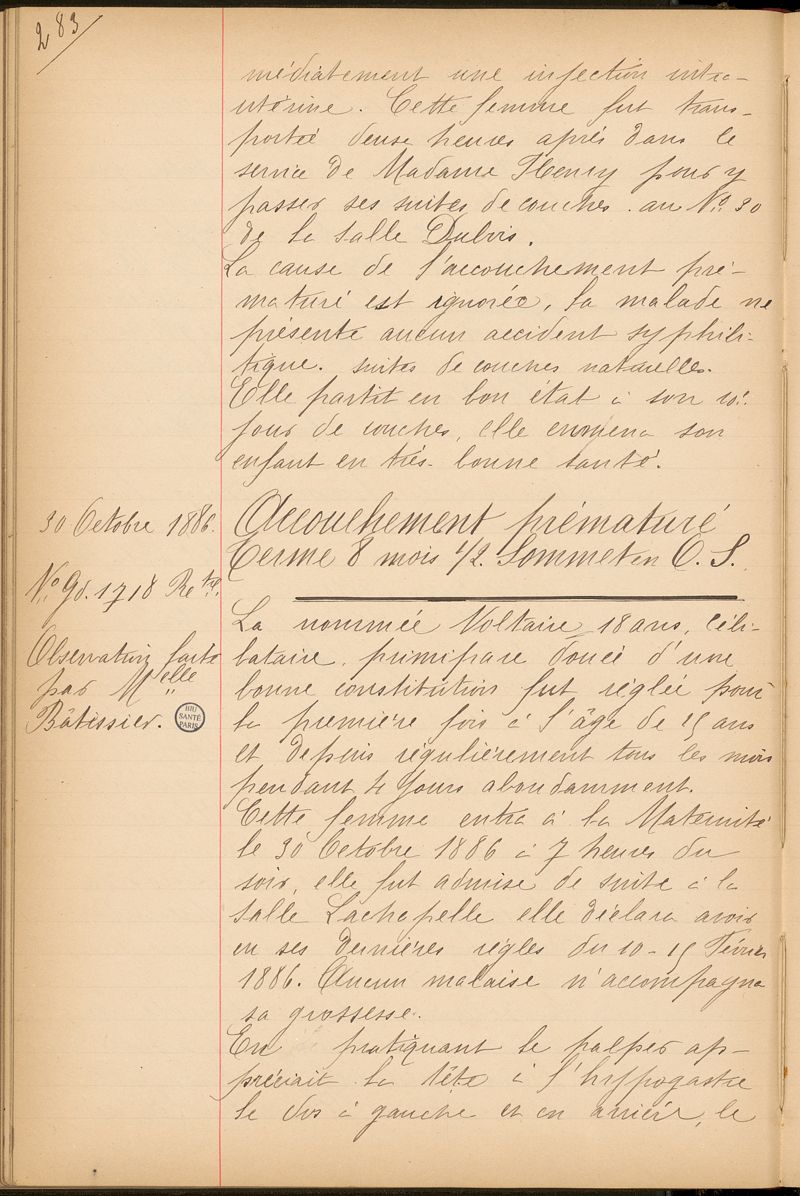 283
médiatement une infection intra-
utérine. Cette femme fut trans-
portée deux heures après dans le
service de Madame Henry pour y
passer ses suites de couches au No. 30
de la salle Dubois.
La cause de l'accouchement pré-
maturé est ignorée, la malade ne
présente aucun accident syphili-
tique. suites de couches naturelles.
Elle partit en bon état à son 10e
jour de couches, elle emmena son
enfant en très bonne santé.
30 Octobre 1886.
Accouchement prématuré
Terme 8 mois 1/2. Sommet en O. S.
No. Gd. 1718
La nommée Voltaire 18 ans, céli-
Observation faite
bataire, primipare douée d'une
par Melle
bonne constitution fut réglée pour
Bâtissier.
BIU
SANTÉ
PARIS
la première fois à l'âge de 15 ans
et depuis régulièrement tous les mois
pendant 4 jours abondamment.
Cette femme entra à la Maternité
le 30 Octobre 1886 à 7 heures du
soir, elle fut admise de suite à la
salle Lachapelle elle déclara avoir
eu ses dernières règles du 10-15 Février
1886. Aucun malaise n'accompagna
sa grossesse.
En pratiquant le palper ap-
préciait la tête à l'hypogastre
le dos à gauche et en arrière, le